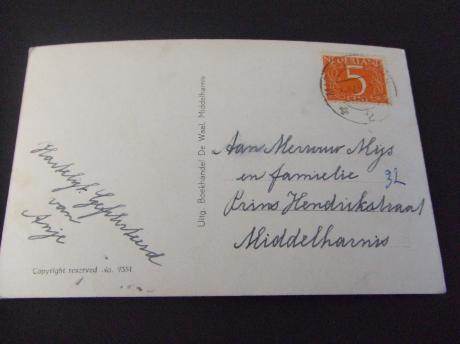 NEDERLAND
5
CENT
Hartelijk Gefeliciteerd
van
Anje
Uitg. Boekhandel De Waal, Middelharnis
Aan Mevrouw Mijs
en famielie
32
Prins Hendrikstraat
Middelharnis
Copyright reserved No. 9551